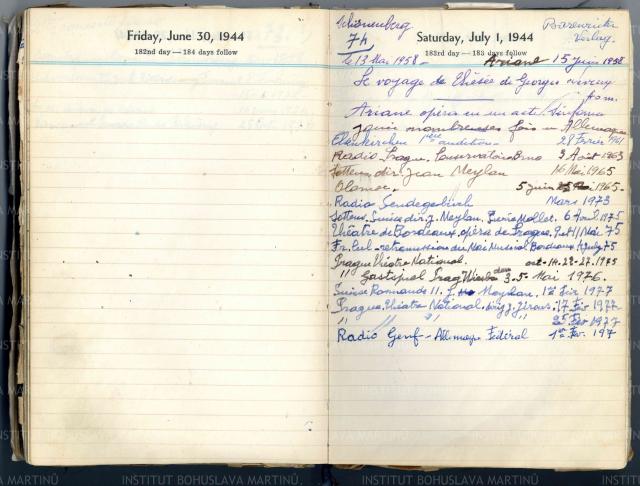 Friday, June 30, 1944
182nd day — 184 days follow
Schönenberg
7h
Saturday, July 1, 1944
183rd day — 183 days follow
Bärenreiter
Verlag.
le 13 Mai 1958 - Ariane 15 juin 1958
Le voyage de Thésée de Georges neveux
Ariane opéra en un acte
jouée nombreuses fois en Allemagne
Gelsenkirchen 1ère audition - 28 Février 1961
Radio Prague. Conservatoire Brno 3 Août 1963
Sottens, dir. Jean Meylan 16 Mai 1965
Olomouc. 5 juin 1965 -
Radio Mars 1973
Sottens. Suisse dir. J. Meylan. 6 Avril 1975
Théâtre de Bordeaux, opéra de Prague. 9 et 11 Mai 75
Fr. Cul. - retransmission du Mai Musical Bordeaux 75
Prague Théâtre National. oct - 14. 22 - 27. 1975
" Gastspiel Prag Wiesbaden 3. 5. Mai 1976.
Suisse Romande II. J. Meylan. 1er Fév 1977
Prague. Théâtre National. dirig J. Jirous. 17 Fév 1977 -
" " " 25 Fév 1977
Radio Genf - Allemagn Fédéral 1er Fév. 197
INSTITUT BOHUSLAVA MARTINŮ